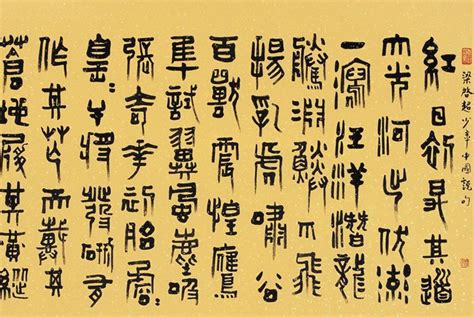 梁啓超少年中國說句
紅日初昇其道
大光河出伏流
一瀉汪洋潛龍
騰淵鱗爪飛
揚乳虎嘯谷
百獸震惶鷹
隼試翼風塵吸
張奇花初胎矞
皇=干將發硎有
作其芒天戴其
蒼地履其黃縱